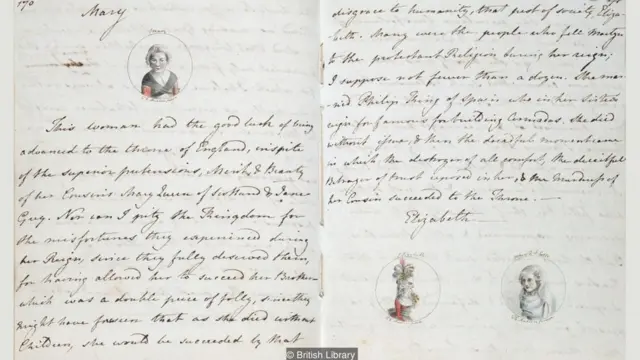 170
Mary
This woman had the good luck of being
advanced to the throne of England, inspite
of the superior pretensions, Merit, & Beauty
of her Cousins Mary Queen of Scotland & Jane
Grey. Nor can I pity the Kingdom for
the misfortunes they experienced during
her Reign, since they fully deserved them,
for having allowed her to succeed her Brother—
which was a double peice of folly, since they
might have foreseen that as she died without
Children, she would be succeeded by that
disgrace to humanity, that pest of society, Eliza-
-beth. Many were the people who fell Martyrs
to the protestant Religion during her reign;
I suppose not fewer than a dozen. She mar-
-ried Philip King of Spain who in her Sister's
reign for famous for building Armadas. She died
without issue, & then the dreadful moment came
in which the destroyer of all comfort, the deceitful
Betrayer of trust reposed in her, & the Murderess of
her Cousin succeeded to the Throne. ——
Elizabeth
© British Library